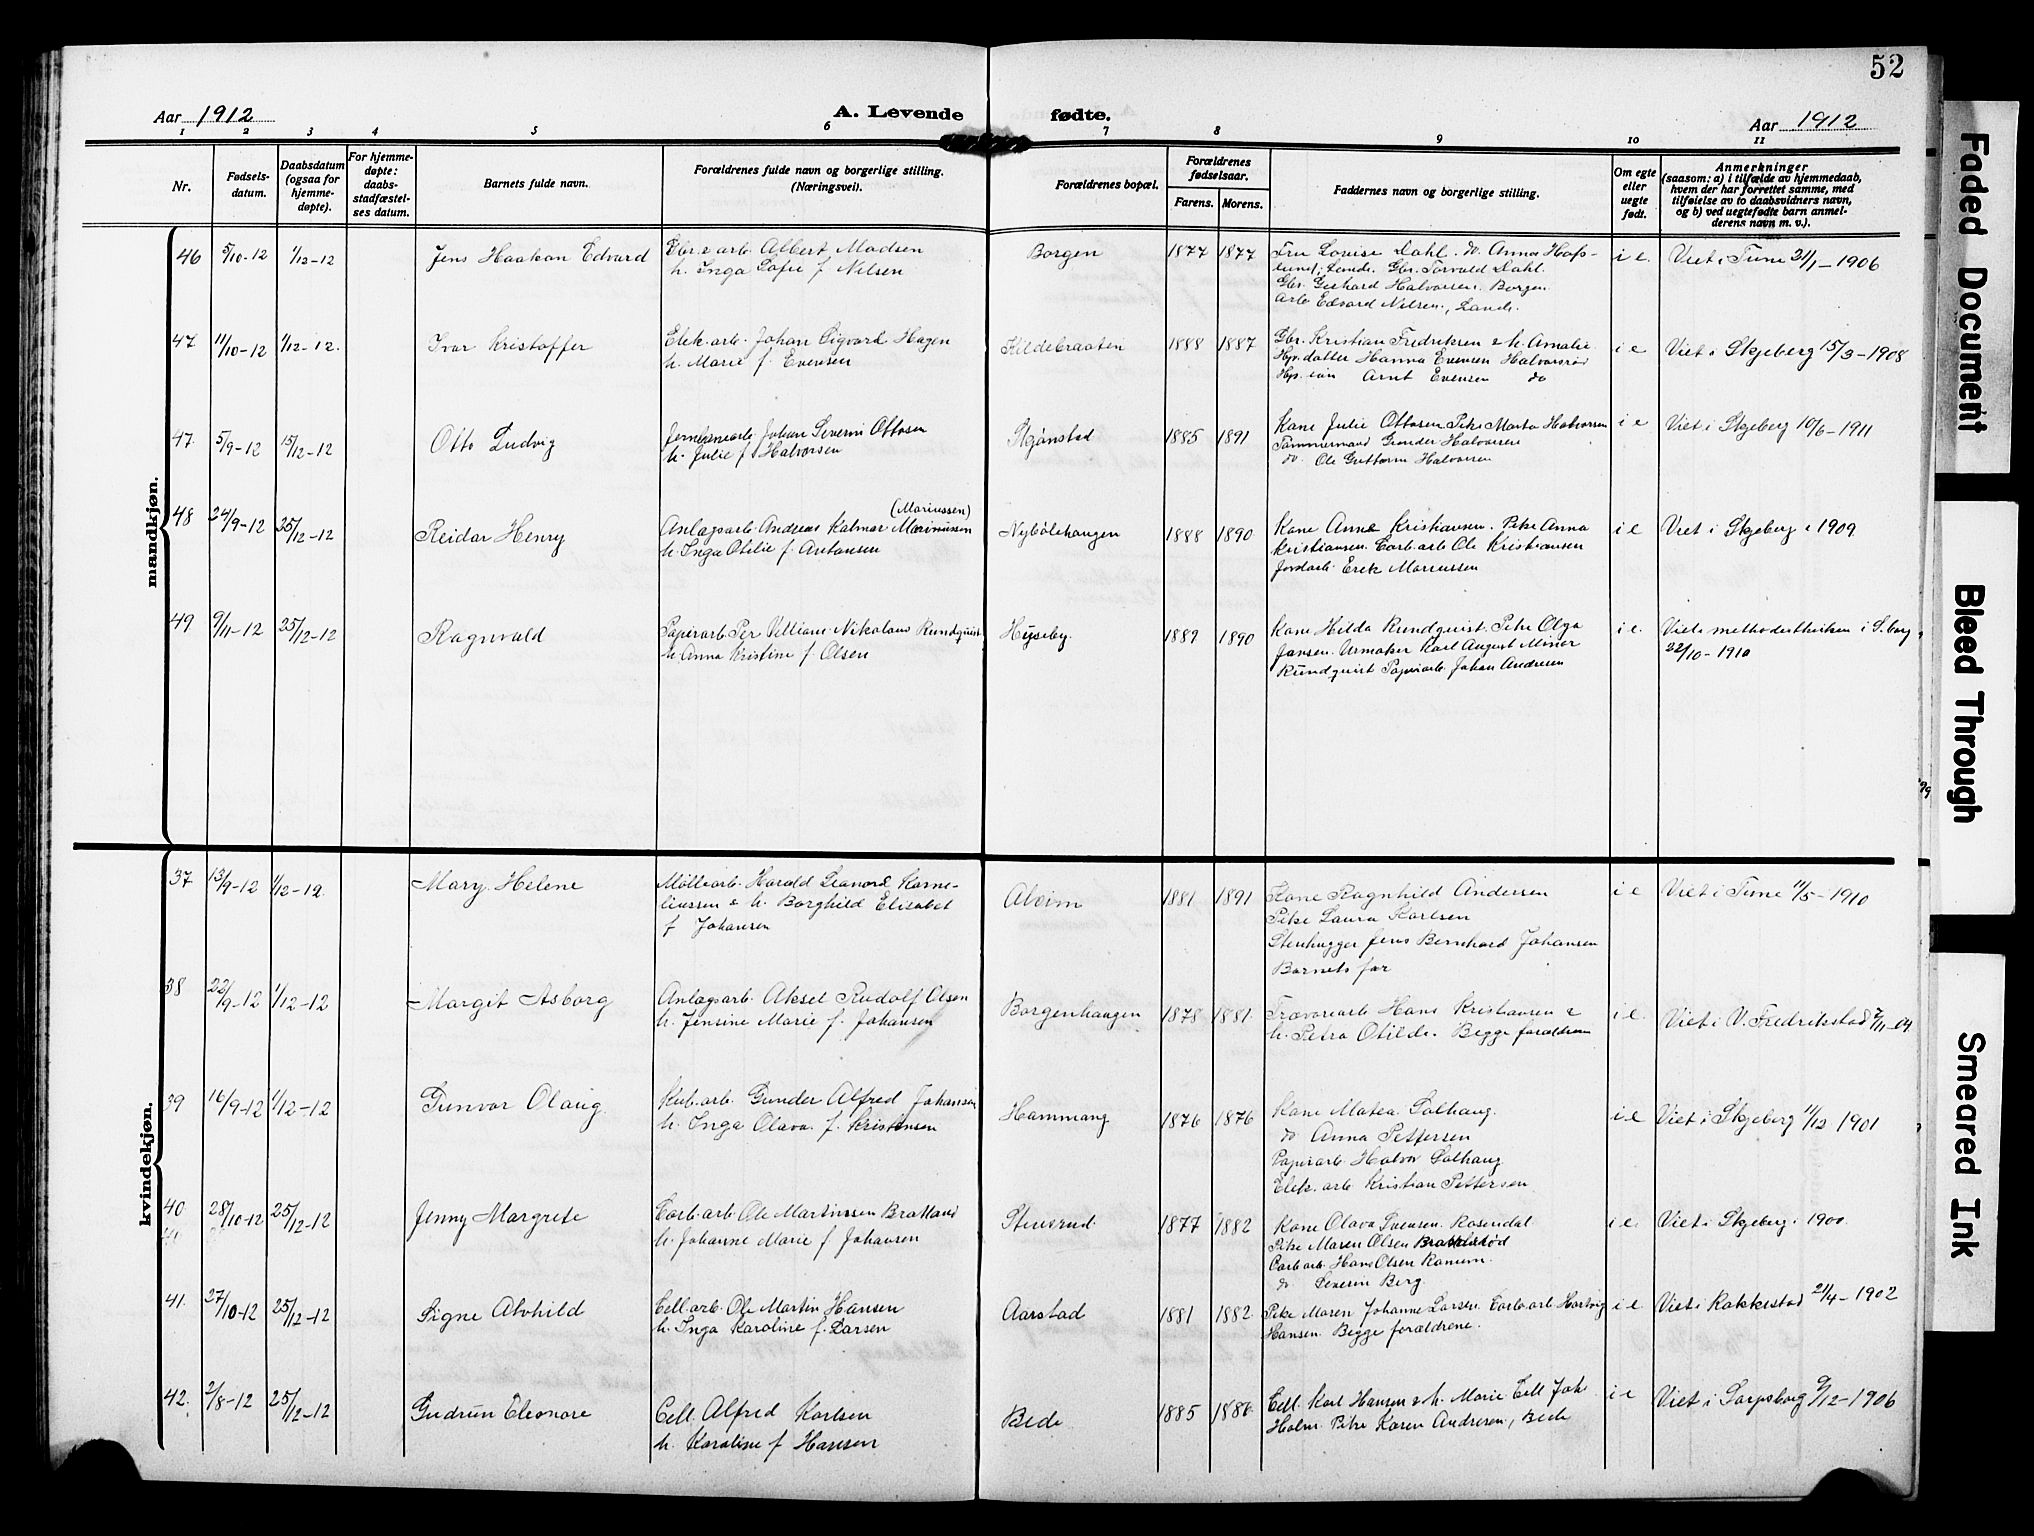 52
Aar 1912
A. Levende fødte.
Aar 1912
1 2 3 4 5 6 7 8 9 10 11
Nr.
Fødsels-
datum.
Daabsdatum
(ogsaa for
hjemme-
døpte).
For hjemme-
døpte:
daabs-
stadfæstel-
ses datum.
Barnets fulde navn.
Forældrenes fulde navn og borgerlige stilling.
(Næringsvei).
Forældrenes bopæl.
Forældrenes
fødselsaar.
Farens. Morens.
Faddernes navn og borgerlige stilling.
Om egte
eller
uegte
født.
Anmerkninger
(saasom: a) i tilfælde av hjemmedaab,
hvem der har forrettet samme, med
tilføielse av to daabsvidners navn,
og b) ved uegtefødte barn anmel-
derens navn m. v.).
mandkjøn.
46 5/10-12 1/12-12 Jens Haakon Edvard
Gbr. & arb. Albert Madsen
h. Inga Sofie f. Nilsen
Borgen 1877 1877
Fru Lovise Dahl. do. Anna Hafs-
lund, Lande. Gbr. Torvald Dahl.
Gbr. Gerhard Halvorsen, Borgen
Arb. Edvard Nilsen, Lande.
i e. Viet i Tune 21/1-1906
47 11/10-12 1/12-12. Ivar Kristoffer
Elek.arb. Johan Sigvard Hagen
h. Marie f. Evensen
Kildebraaten 1888 1887
Gbr. Kristian Fredriksen & h. Amalie.
Hps.datter Hanna Evensen Halvorsrød
Hps. søn Arnt Evensen do
i e Viet i Skjeberg 15/3-1908
47. 5/9-12 15/12-12 Otto Ludvig
Jernbanearb. Johan Severin Ottosen
h. Julie f. Halvorsen
Skjønstad 1885 1891
Kone Julie Ottosen Pike Marta Halvorsen
Tømmermand Gunder Halvorsen
do. Ole Guttorm Halvorsen
i e Viet i Skjeberg 10/6-1911
48 24/9-12 25/12-12 Reidar Henry
(Mariussen)
Anlægsarb. Andreas Kalmar Marinussen
h. Inga Otilie f. Antonsen
Nybølehaugen 1888 1890
Kone Anne Kristiansen. Pike Anna
Kristiansen. Carb.arb. Ole Kristiansen
Jordarb. Erek Mariussen
i e Viet i Skjeberg i 1909
49 9/11-12 25/12-12 Ragnvald
Papirarb. Per Villiam Nikolaus Rundquist
h. Anna Kristine f. Olsen
Hyseby. 1889 1890
Kone Hilda Rundquist. Pike Olga
Jansen. Urmaker Karl August Minor
Rundquist Papirarb. Johan Andresen
i e. Viet i methodistkirken i S.borg
22/10-1910
kvindekjøn.
37 13/9-12 1/12-12. Mary Helene
Møllearb. Harald Leonard Korne-
liussen & h. Borghild Elisabet
f Johansen
Alvim 1881 1891
Kone Ragnhild Andersen
Pike Laura Karlsen
Stenhugger Jens Bernhard Johansen
Barnets far
i e Viet i Tune 11/5-1910
38 22/9-12 1/12-12 Margit Asborg
Anlægsarb. Aksel Rudolf Olsen
h. Jensine Marie f. Johansen
Borgenhaugen 1878 1881.
Trævarearb. Hans Kristiansen &
h. Petra Otilde. Begge forældrene
i e. Viet i V. Fredrikstad 7/11-04
39 16/9-12 1/12-12 Gunvor Olaug
Kub.arb. Gunder Alfred Johansen
h. Inga Olava. f. Kristensen
Hammang 1876 1876
Kone Matea Solhaug.
do Anna Pettersen
Papirarb. Halvor Solhaug
Elek. arb. Kristian Pettersen
i e Viet i Skjeberg 11/12 1901
40 28/10-12 25/12-12 Jenny Margrete
Carb.arb. Ole Martinssen Bratland
h. Johanne Marie f Johansen
Stensrud. 1877 1882
Kone Olava Svensen. Rosendal
Pike Maren Olsen
Carb.arb. Hans Olsen Ramum.
do Severin Berg.
i e. Viet i Skjeberg i 1900.
41. 27/10-12 25/12-12 Signe Alvhild
Cell.arb. Ole Martin Hansen
h. Inga Karoline f. Larsen
Aarstad 1881 1882
Pike Maren Johanne Larsen. Carb.arb. Hartvig
Hansen. Begge forældrene.
i e Viet i Rakkestad 21/4-1902
42. 2/8-12 25/12-12 Gudrun Eleonore
Cell. Alfred Karlsen
h. Karoline f Hansen
Bede. 1885 1886
Cell. Karl Hansen & h. Marie. Cell Joh.
Holm. Pike Karen Andresen, Bede
i e Viet i Sarpsborg 9/12-1906
Faded Document
Bleed Through
Smeared Ink